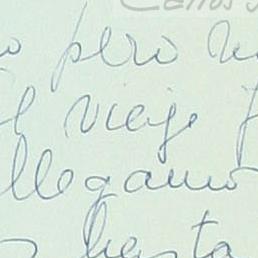 Carlos
pero
el viaje
llegamos
hasta